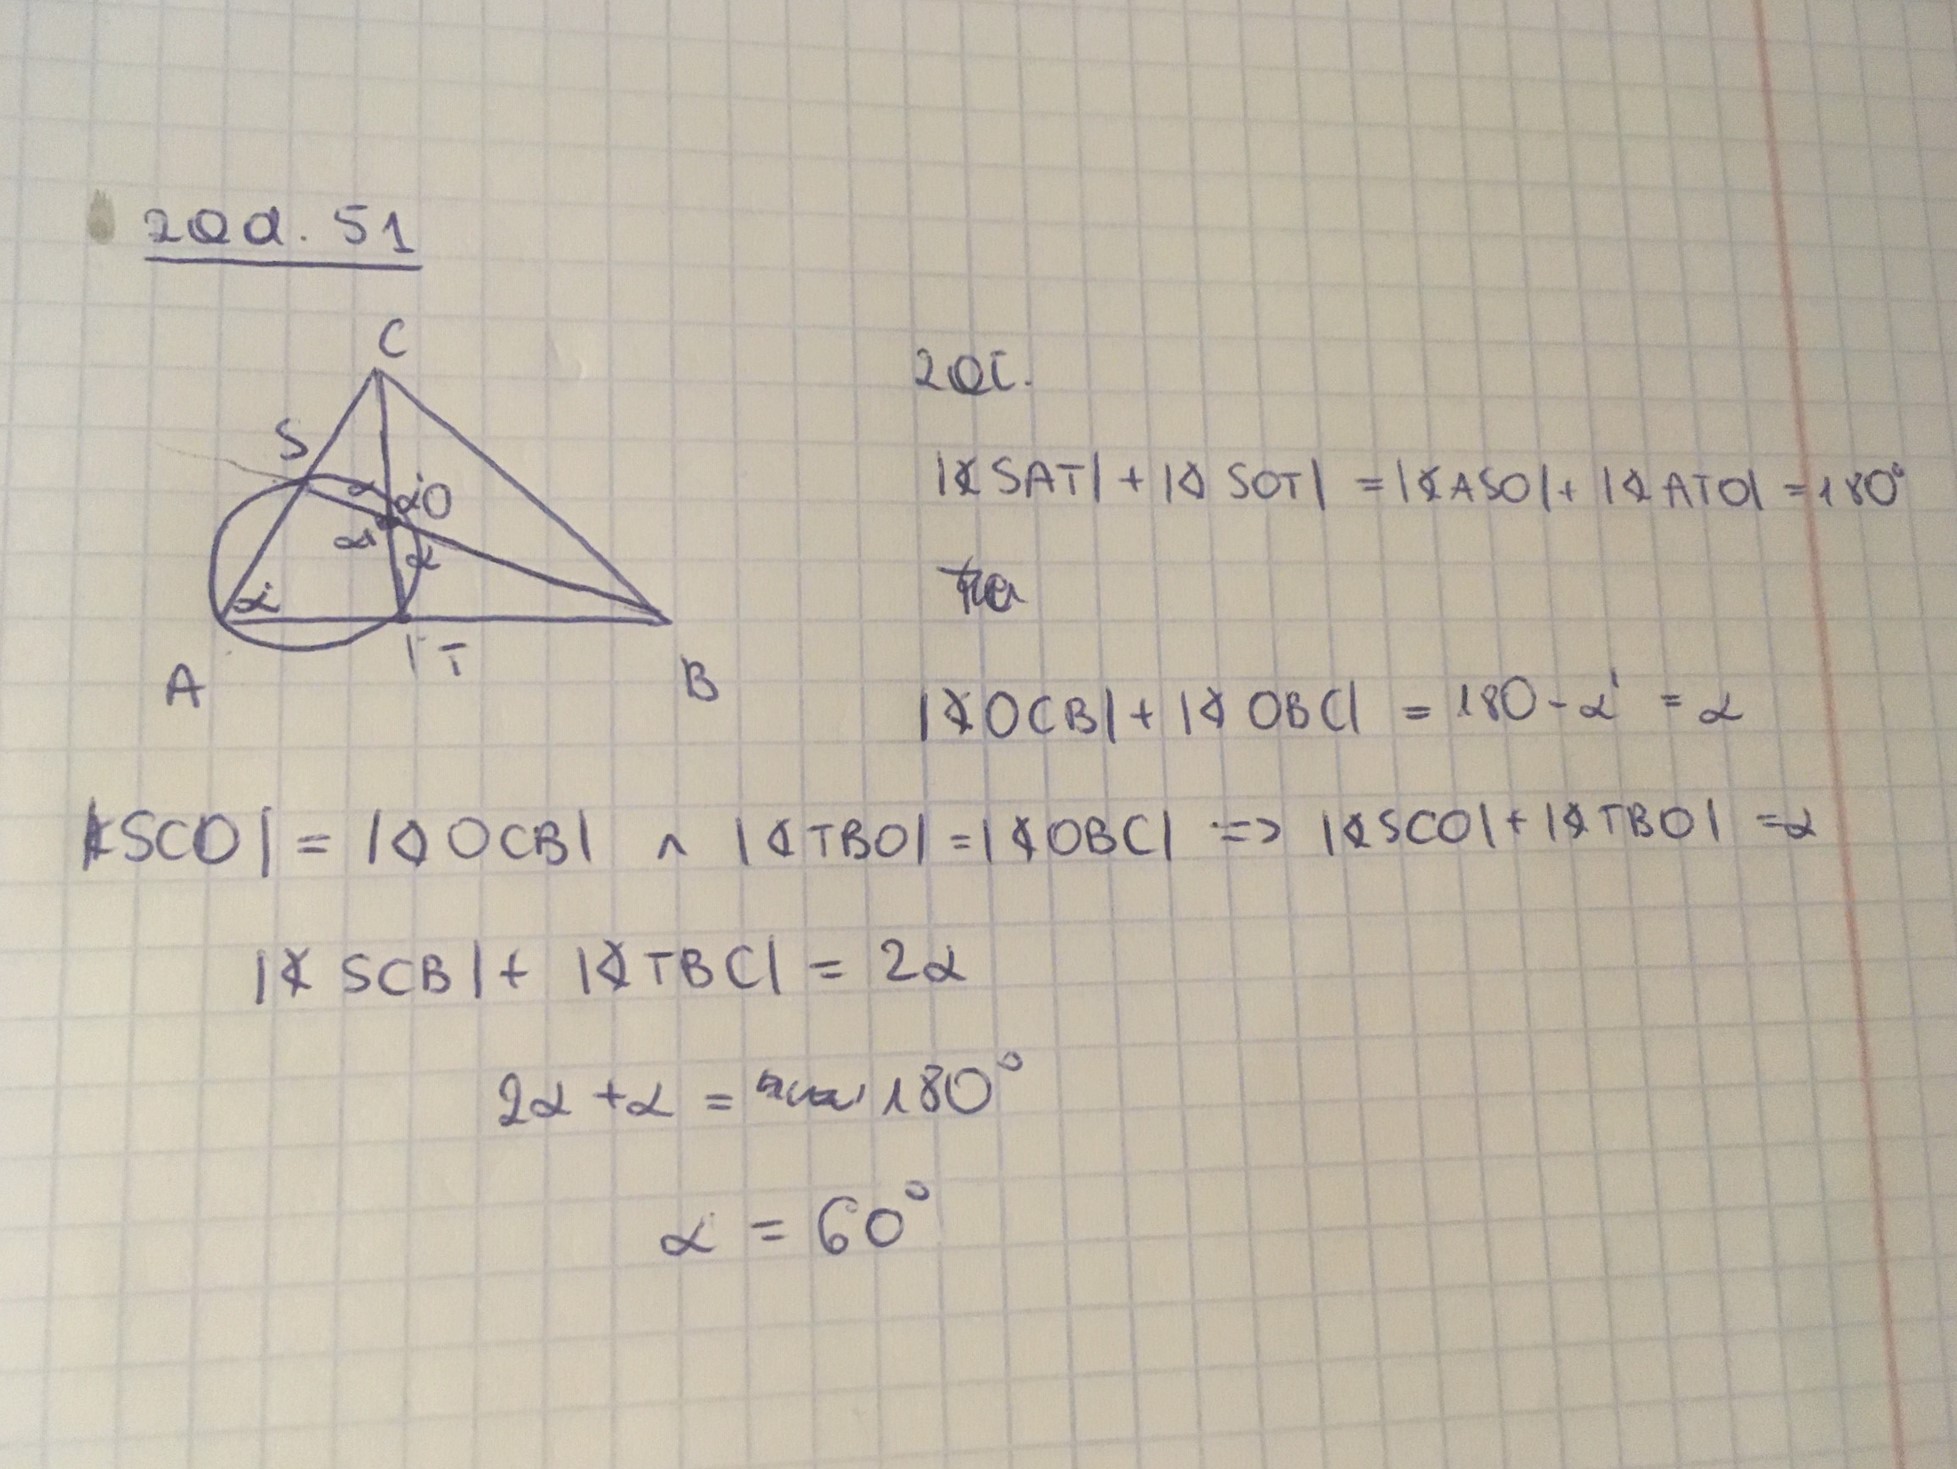 zad. 51
C
S
α α' O
α' α
α
T
A B
zał.
|∢SAT| + |∢SOT| = |∢ASO| + |∢ATO| = 180°
|∢OCB| + |∢OBC| = 180 - α' = α
|∢SCO| = |∢OCB| ∧ |∢TBO| = |∢OBC| => |∢SCO| + |∢TBO| = α
|∢SCB| + |∢TBC| = 2α
2α + α = 180°
α = 60°